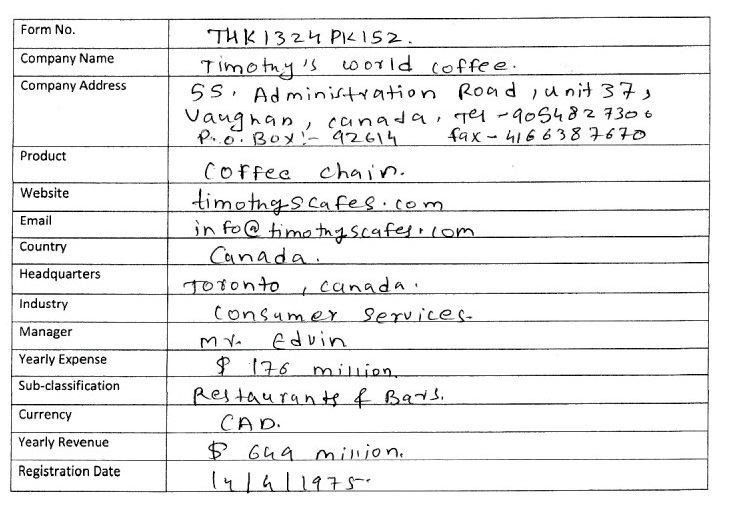 Form No. THK1324PK152.
Company Name Timothy's world coffee.
Company Address 55, Administration Road, unit 37,
Vaughan, canada, Tel -9054827306
P.O. Box:- 92614 fax - 4166387670
Product Coffee chain.
Website timothyscafes.com
Email info@timothyscafes.com
Country Canada.
Headquarters Toronto, canada.
Industry Consumer Services.
Manager Mr. Edvin
Yearly Expense $ 176 million
Sub-classification Restaurants & Bars.
Currency CAD.
Yearly Revenue $ 649 million.
Registration Date 14/4/1975.